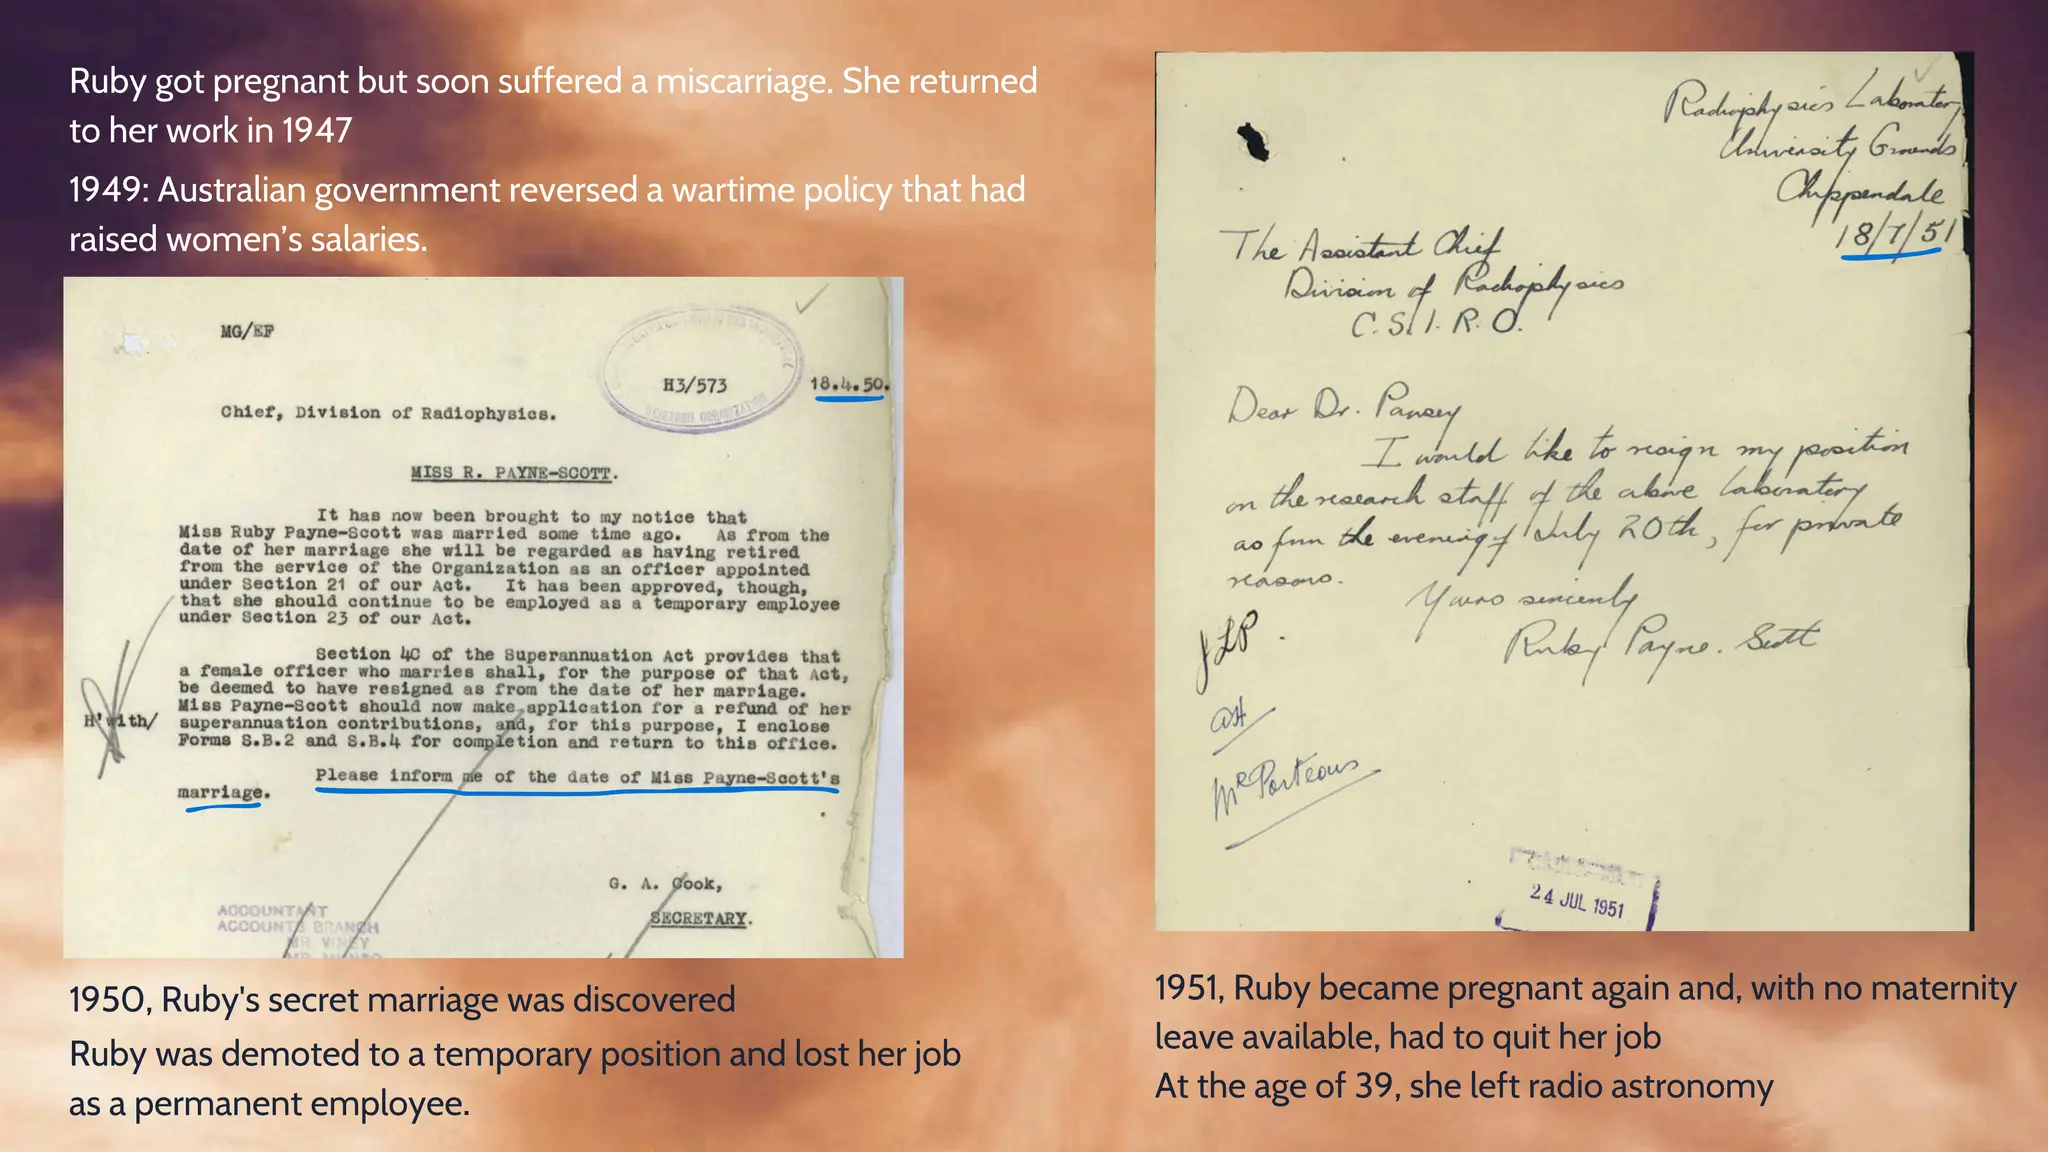 Ruby got pregnant but soon suffered a miscarriage. She returned
to her work in 1947
1949: Australian government reversed a wartime policy that had
raised women's salaries.
MG/EF
H3/573
18.4.50.
Chief, Division of Radiophysics.
MISS R. PAYNE-SCOTT.
It has now been brought to my notice that
Miss Ruby Payne-Scott was married some time ago. As from the
date of her marriage she will be regarded as having retired
from the service of the Organization as an officer appointed
under Section 21 of our Act. It has been approved, though,
that she should continue to be employed as a temporary employee
under Section 23 of our Act.
Section 4C of the Superannuation Act provides that
a female officer who marries shall, for the purpose of that Act,
be deemed to have resigned as from the date of her marriage.
Miss Payne-Scott should now make application for a refund of her
H'with/ superannuation contributions, and, for this purpose, I enclose
Forms S.B.2 and S.B.4 for completion and return to this office.
Please inform me of the date of Miss Payne-Scott's
marriage.
G. A. Cook,
SECRETARY.
ACCOUNTANT
ACCOUNTS BRANCH
MR VINEY
1950, Ruby's secret marriage was discovered
Ruby was demoted to a temporary position and lost her job
as a permanent employee.
Radiophysics Laboratory
University Grounds
Chippendale
18/7/51
The Assistant Chief
Division of Radiophysics
C.S.I.R.O.
Dear Dr. Pawsey
I would like to resign my position
on the research staff of the above laboratory
as from the evening of July 20th, for private
reasons.
Yours sincerely
Ruby Payne-Scott
JLP.
Mr Porteous
24 JUL 1951
1951, Ruby became pregnant again and, with no maternity
leave available, had to quit her job
At the age of 39, she left radio astronomy